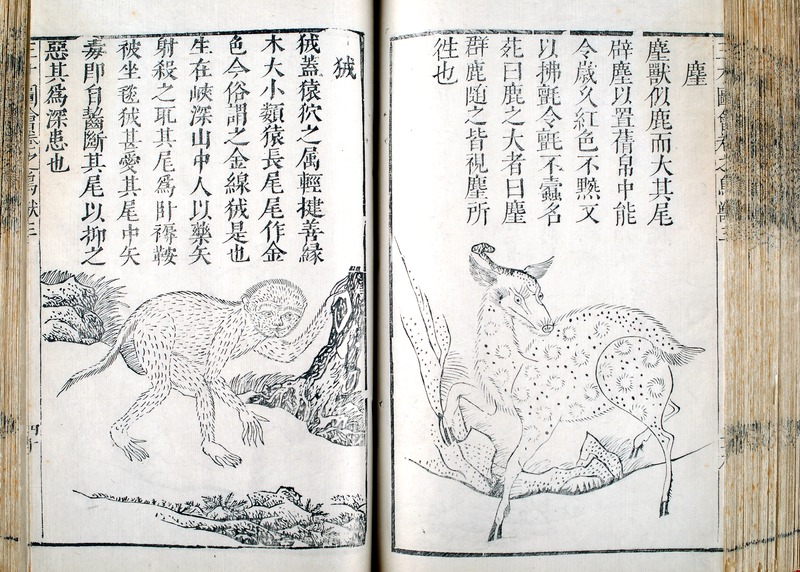 麈
麈獸似鹿而大其尾
辟塵以置蒨帛中能
令歲久紅色不黦又
以拂氈令氈不蠹名
苑曰鹿之大者曰麈
群鹿隨之皆視麈所
徃也
狨
狨蓋猿狖之属輕揵善緣
木大小類猿長尾尾作金
色今俗謂之金線狨是也
生在峽深山中人以藥矢
射殺之耴其尾爲卧褥鞍
被坐毯狨甚愛其尾中矢
毒即自齧斷其尾以抑之
惡其爲深患也